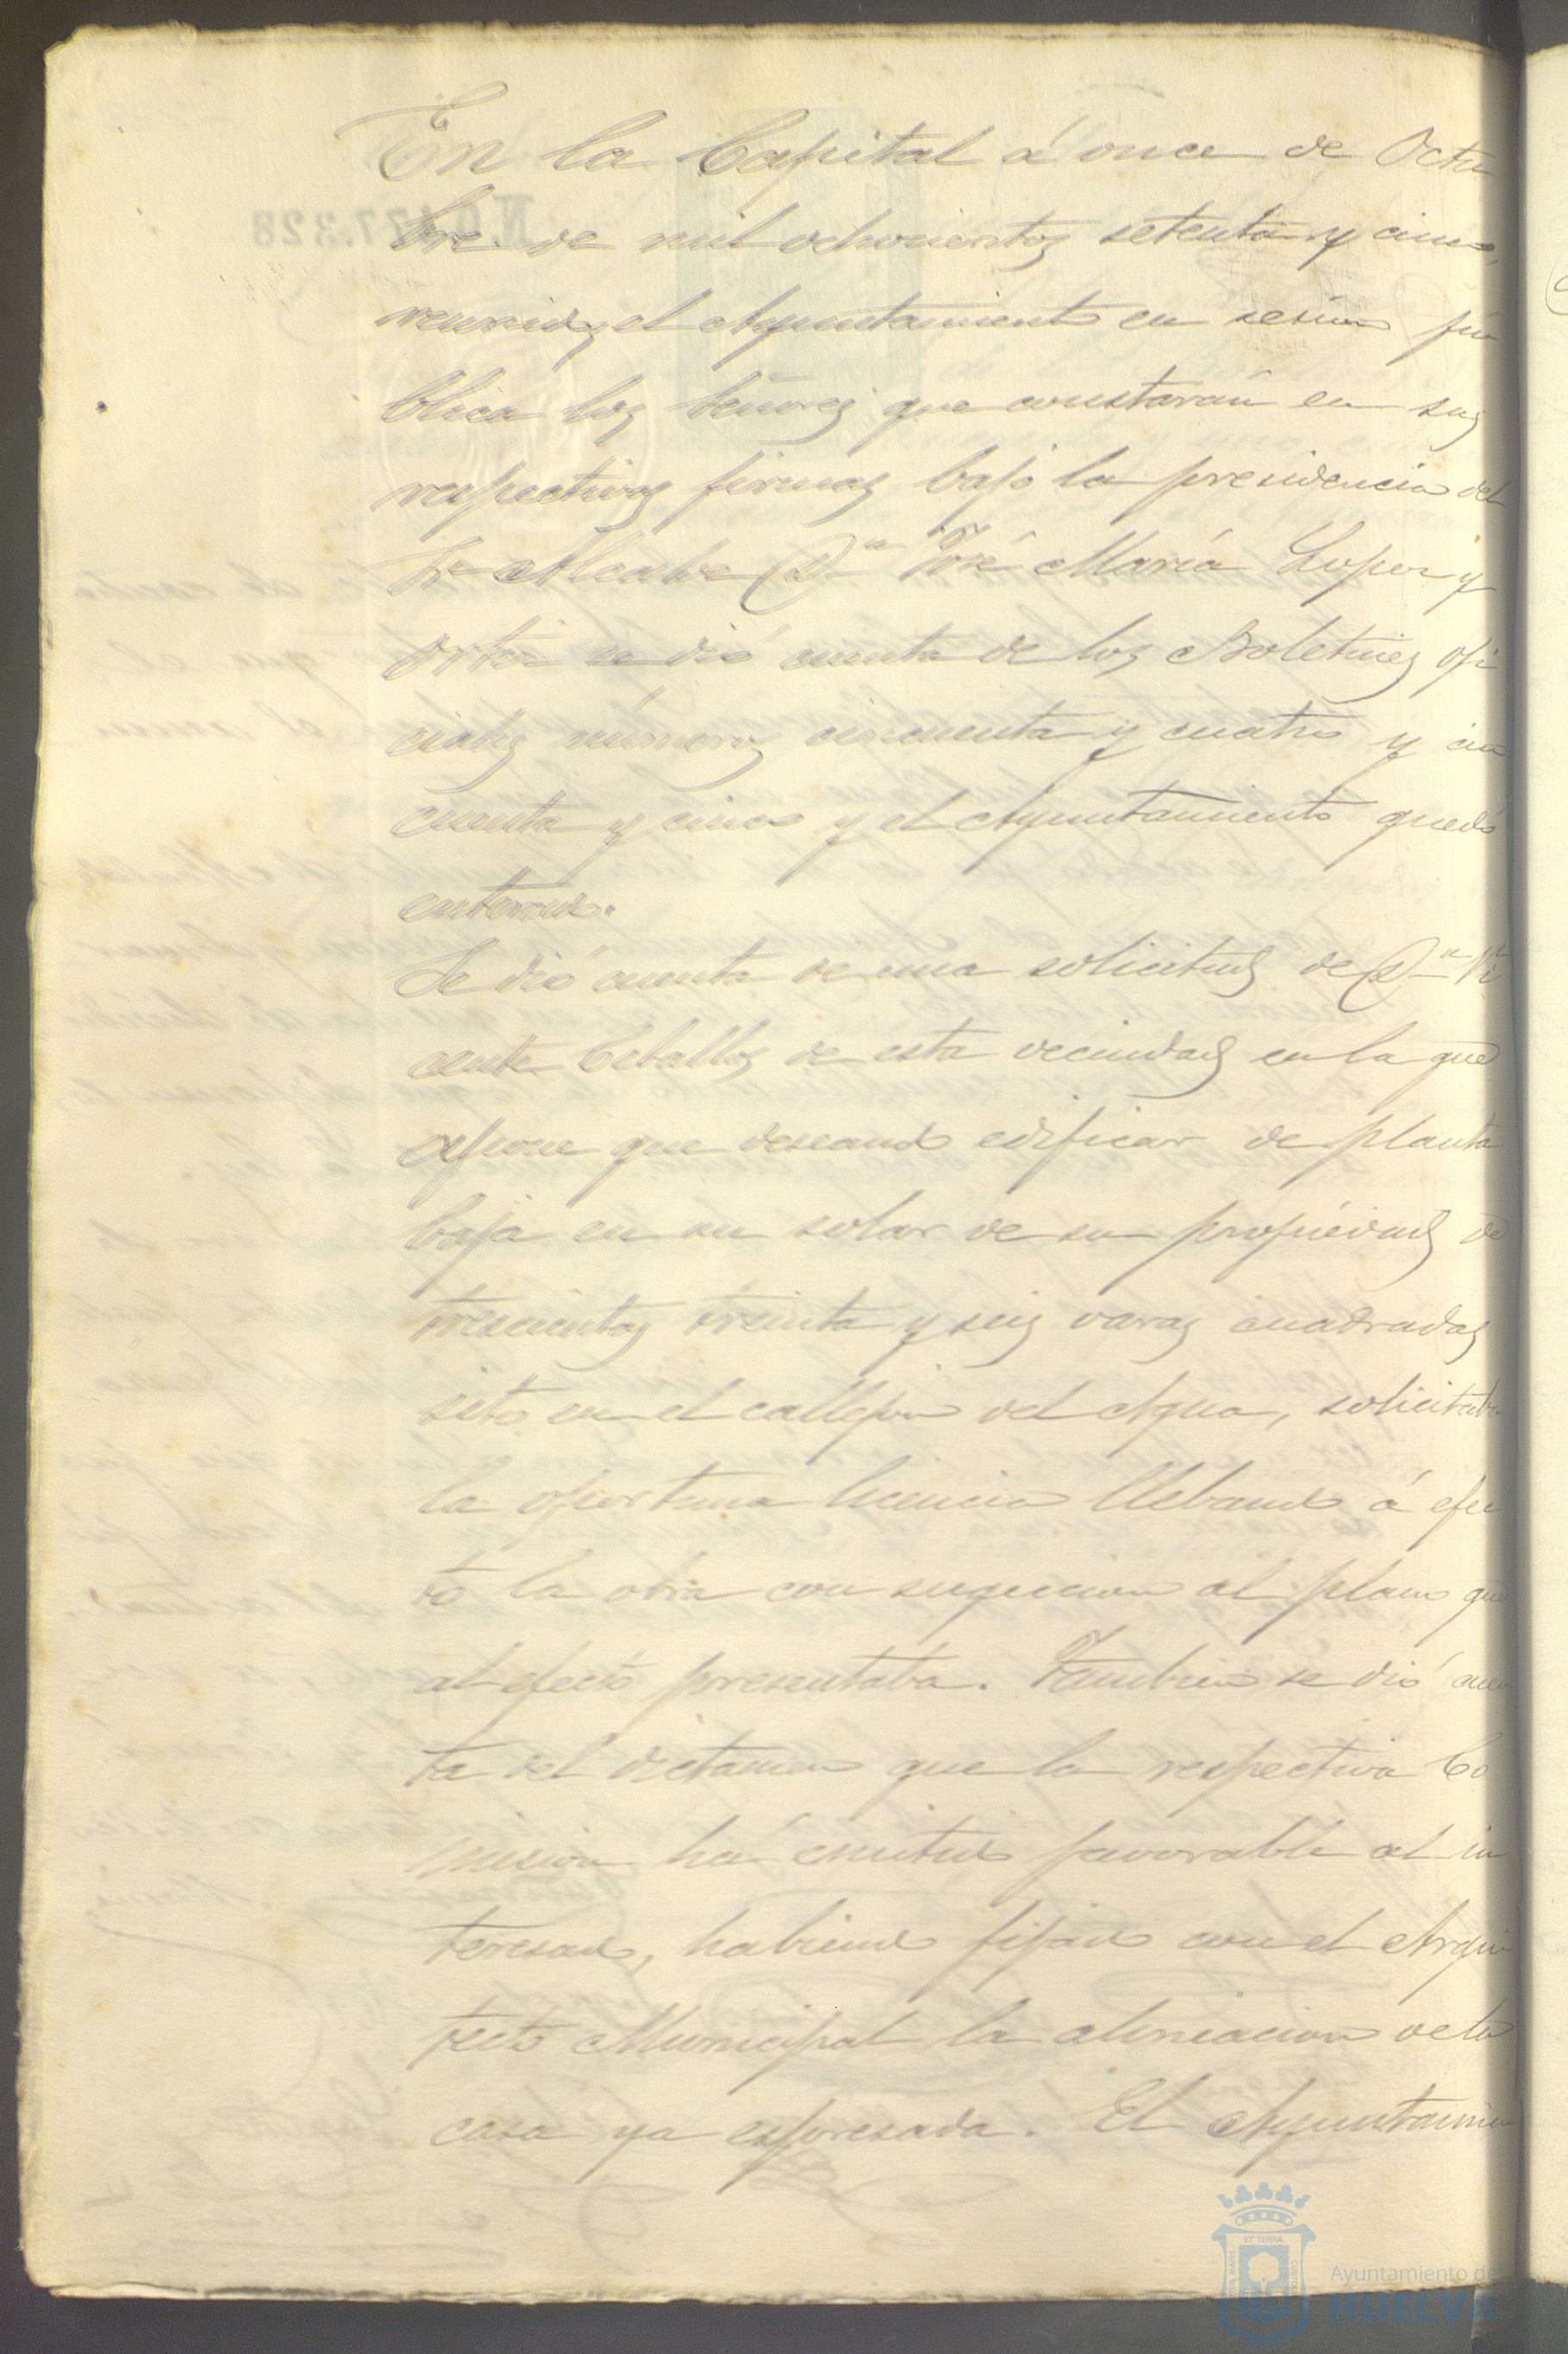 En la Capital á once de Octu
bre de mil ochocientos setenta y cinco,
reunidos el Ayuntamiento en sesion pú
blica los Señores que constarán en sus
respectivas firmas bajo la presidencia del
Sr Alcalde Dn José María Lopez y
Ortiz se dió cuenta de los Boletines ofi
ciales números cincuenta y cuatro y cin
cuenta y cinco y el Ayuntamiento quedó
enterado.
Se dió cuenta de una solicitud de Dn Vi
cente Ceballos de esta vecindad en la que
espone que deseando edificar de planta
baja en un solar de su propiedad de
trescientas treinta y seis varas cuadradas
sito en el callejon del Agua, solicitaba
la oportuna licencia llebando á efec
to la obra con sugecion al plano que
al efecto presentaba. Tambien se dió cuen
ta del dictamen que la respectiva Co
mision há emitido favorable al in
teresado, habiendo fijado con el Arqui
tecto Municipal la aliniacion de la
casa ya espresada. El Ayuntamien
Nº 0.477.328
Ayuntamiento de
HUELVA